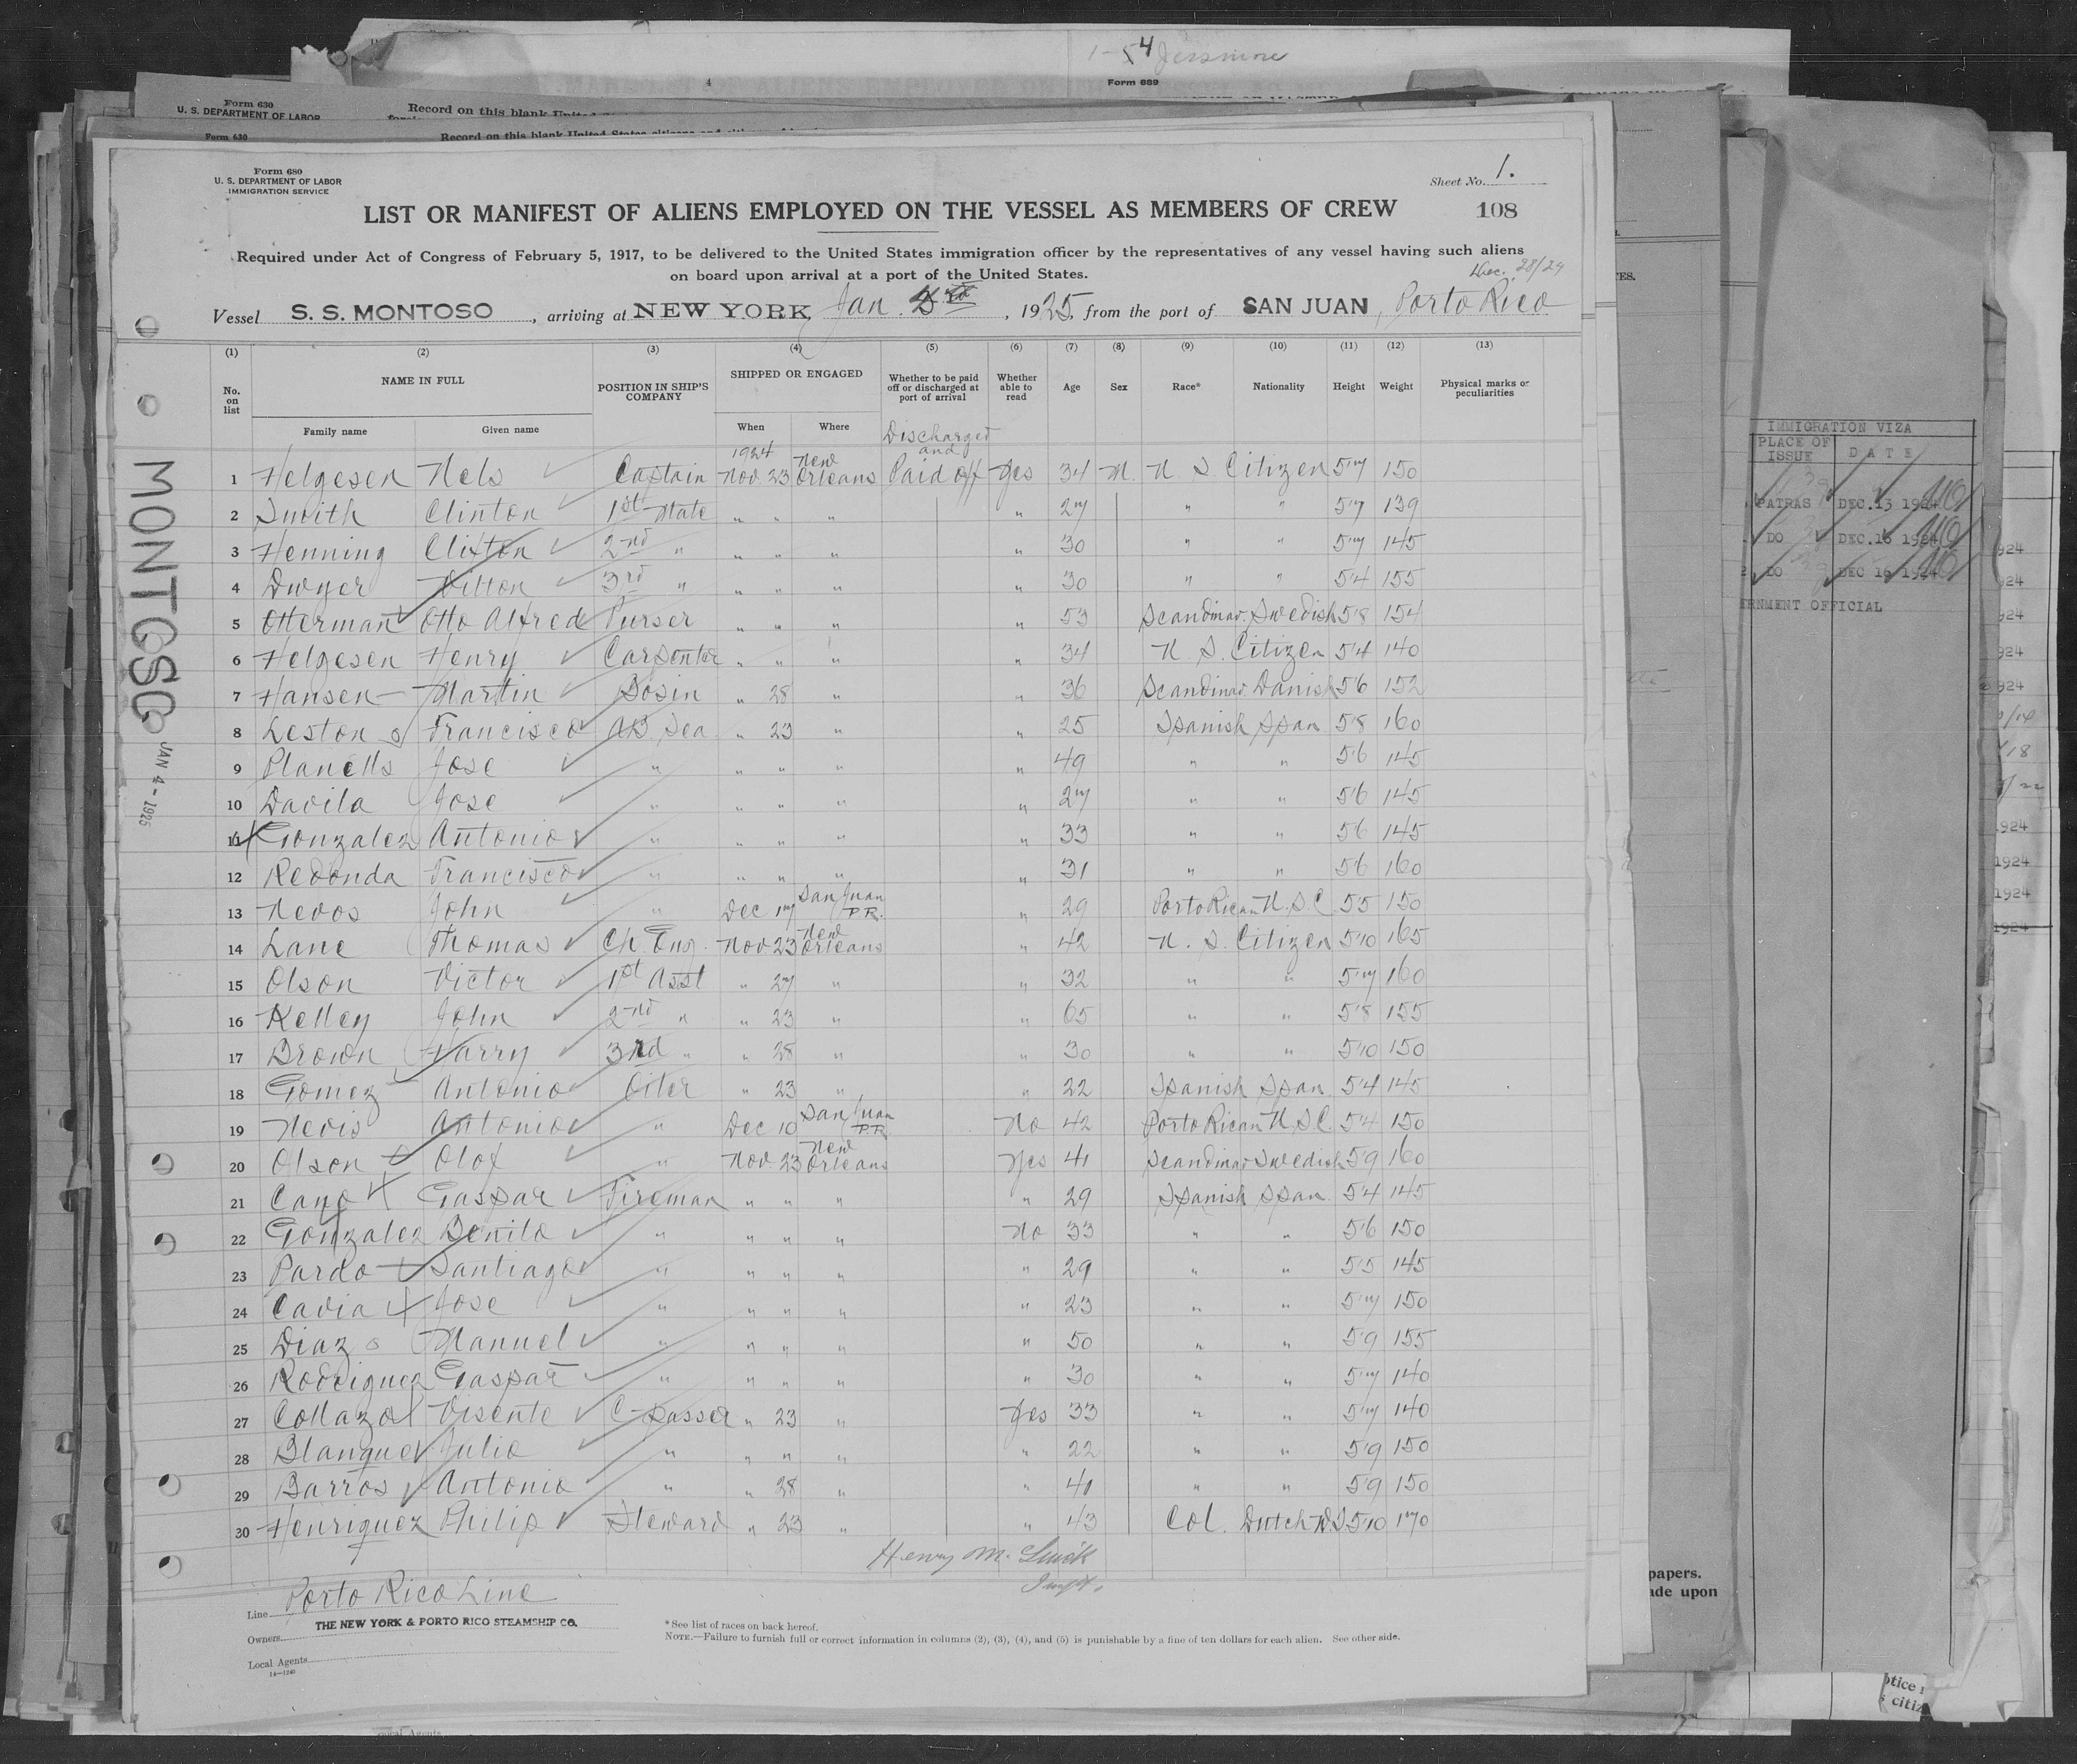 1-54 Jessmore
4
Form 689
Form 630
U. S. DEPARTMENT OF LABOR
Record on this blank United
Form 630
Record on this blank United States citizens and
Form 680
U. S. DEPARTMENT OF LABOR
IMMIGRATION SERVICE
Sheet No. 1.
LIST OR MANIFEST OF ALIENS EMPLOYED ON THE VESSEL AS MEMBERS OF CREW
108
Required under Act of Congress of February 5, 1917, to be delivered to the United States immigration officer by the representatives of any vessel having such aliens
on board upon arrival at a port of the United States.
Dec. 28/24
Vessel S. S. MONTOSO, arriving at NEW YORK, Jan. , 1925, from the port of SAN JUAN, Porto Rico
(1) (2) (3) (4) (5) (6) (7) (8) (9) (10) (11) (12) (13)
No. on list NAME IN FULL POSITION IN SHIP'S COMPANY SHIPPED OR ENGAGED Whether to be paid off or discharged at port of arrival Whether able to read Age Sex Race* Nationality Height Weight Physical marks or peculiarities
Family name Given name When Where
1924 Discharged and
1 Helgesen Nels Captain Nov. 23 New Orleans Paid off Yes 34 M. U S Citizen 5'7 150
2 Smith Clinton 1st Mate " " " " 27 " " 5'7 139
3 Henning Clifton 2nd " " " " " 30 " " 5'7 145
4 Dwyer Dilton 3rd " " " " " 30 " " 5'4 155
5 Otterman Otto Alfred Purser " " " " 53 Scandinav. Swedish 5'8 154
6 Helgesen Henry Carpenter " " " " 34 U. S. Citizen 5'4 140
7 Hansen Martin Bosin " 28 " " 36 Scandinav Danish 5'6 152
8 Leston Francisco AB Sea " 23 " " 25 Spanish Span 5'8 160
9 Planells Jose " " " " " 49 " " 5'6 145
10 Davila Jose " " " " " 27 " " 5'6 145
11 Gonzalez Antonio " " " " " 33 " " 5'6 145
12 Redonda Francisco " " " " " 31 " " 5'6 160
13 Nevos John " Dec 17 San Juan P.R. " 29 Porto Rican U.S.C. 5'5 150
14 Lane Thomas Ch Eng. Nov 23 New Orleans " 42 U. S. Citizen 5'10 165
15 Olson Victor 1st Asst " 27 " " 32 " " 5'7 160
16 Kelley John 2nd " " 23 " " 65 " " 5'8 155
17 Brown Harry 3rd " " 28 " " 30 " " 5'10 150
18 Gomez Antonio Oiler " 23 " " 22 Spanish Span. 5'4 145
19 Nevis Antonio " Dec 10 San Juan P.R. No 42 Porto Rican U.S.C. 5'4 150
20 Olson Olof " Nov. 23 New Orleans Yes 41 Scandinav Swedish 5'9 160
21 Cano Gaspar Fireman " " " " 29 Spanish Span. 5'4 145
22 Gonzalez Benito " " " " No 33 " " 5'6 150
23 Pardo Santiago " " " " " 29 " " 5'5 145
24 Cavia Jose " " " " " 23 " " 5'7 150
25 Diaz Manuel " " " " " 50 " " 5'9 155
26 Rodriguez Gaspar " " " " " 30 " " 5'7 140
27 Collazo Visente C-passer " 23 " Yes 33 " " 5'7 140
28 Blanquet Julio " " " " " 22 " " 5'9 150
29 Barros Antonio " " 28 " " 41 " " 5'9 150
30 Henriquez Philip Steward " 23 " " 43 Col. Dutch W.I 5'10 170
Henry M.
Insptr.
Line Porto Rico Line
Owners THE NEW YORK & PORTO RICO STEAMSHIP CO.
Local Agents
14—1240
*See list of races on back hereof.
NOTE.—Failure to furnish full or correct information in columns (2), (3), (4), and (5) is punishable by a fine of ten dollars for each alien. See other side.
MONTOSO JAN 4 - 1925
IMMIGRATION VIZA
PLACE OF ISSUE DATE
PATRAS DEC.13 1924
DO DEC.16 1924
DO DEC 16 1924
ERNMENT OFFICIAL
924
924
924
924
924
/18
/22
1924
1924
1924
1924
papers.
ade upon
otice
citiz